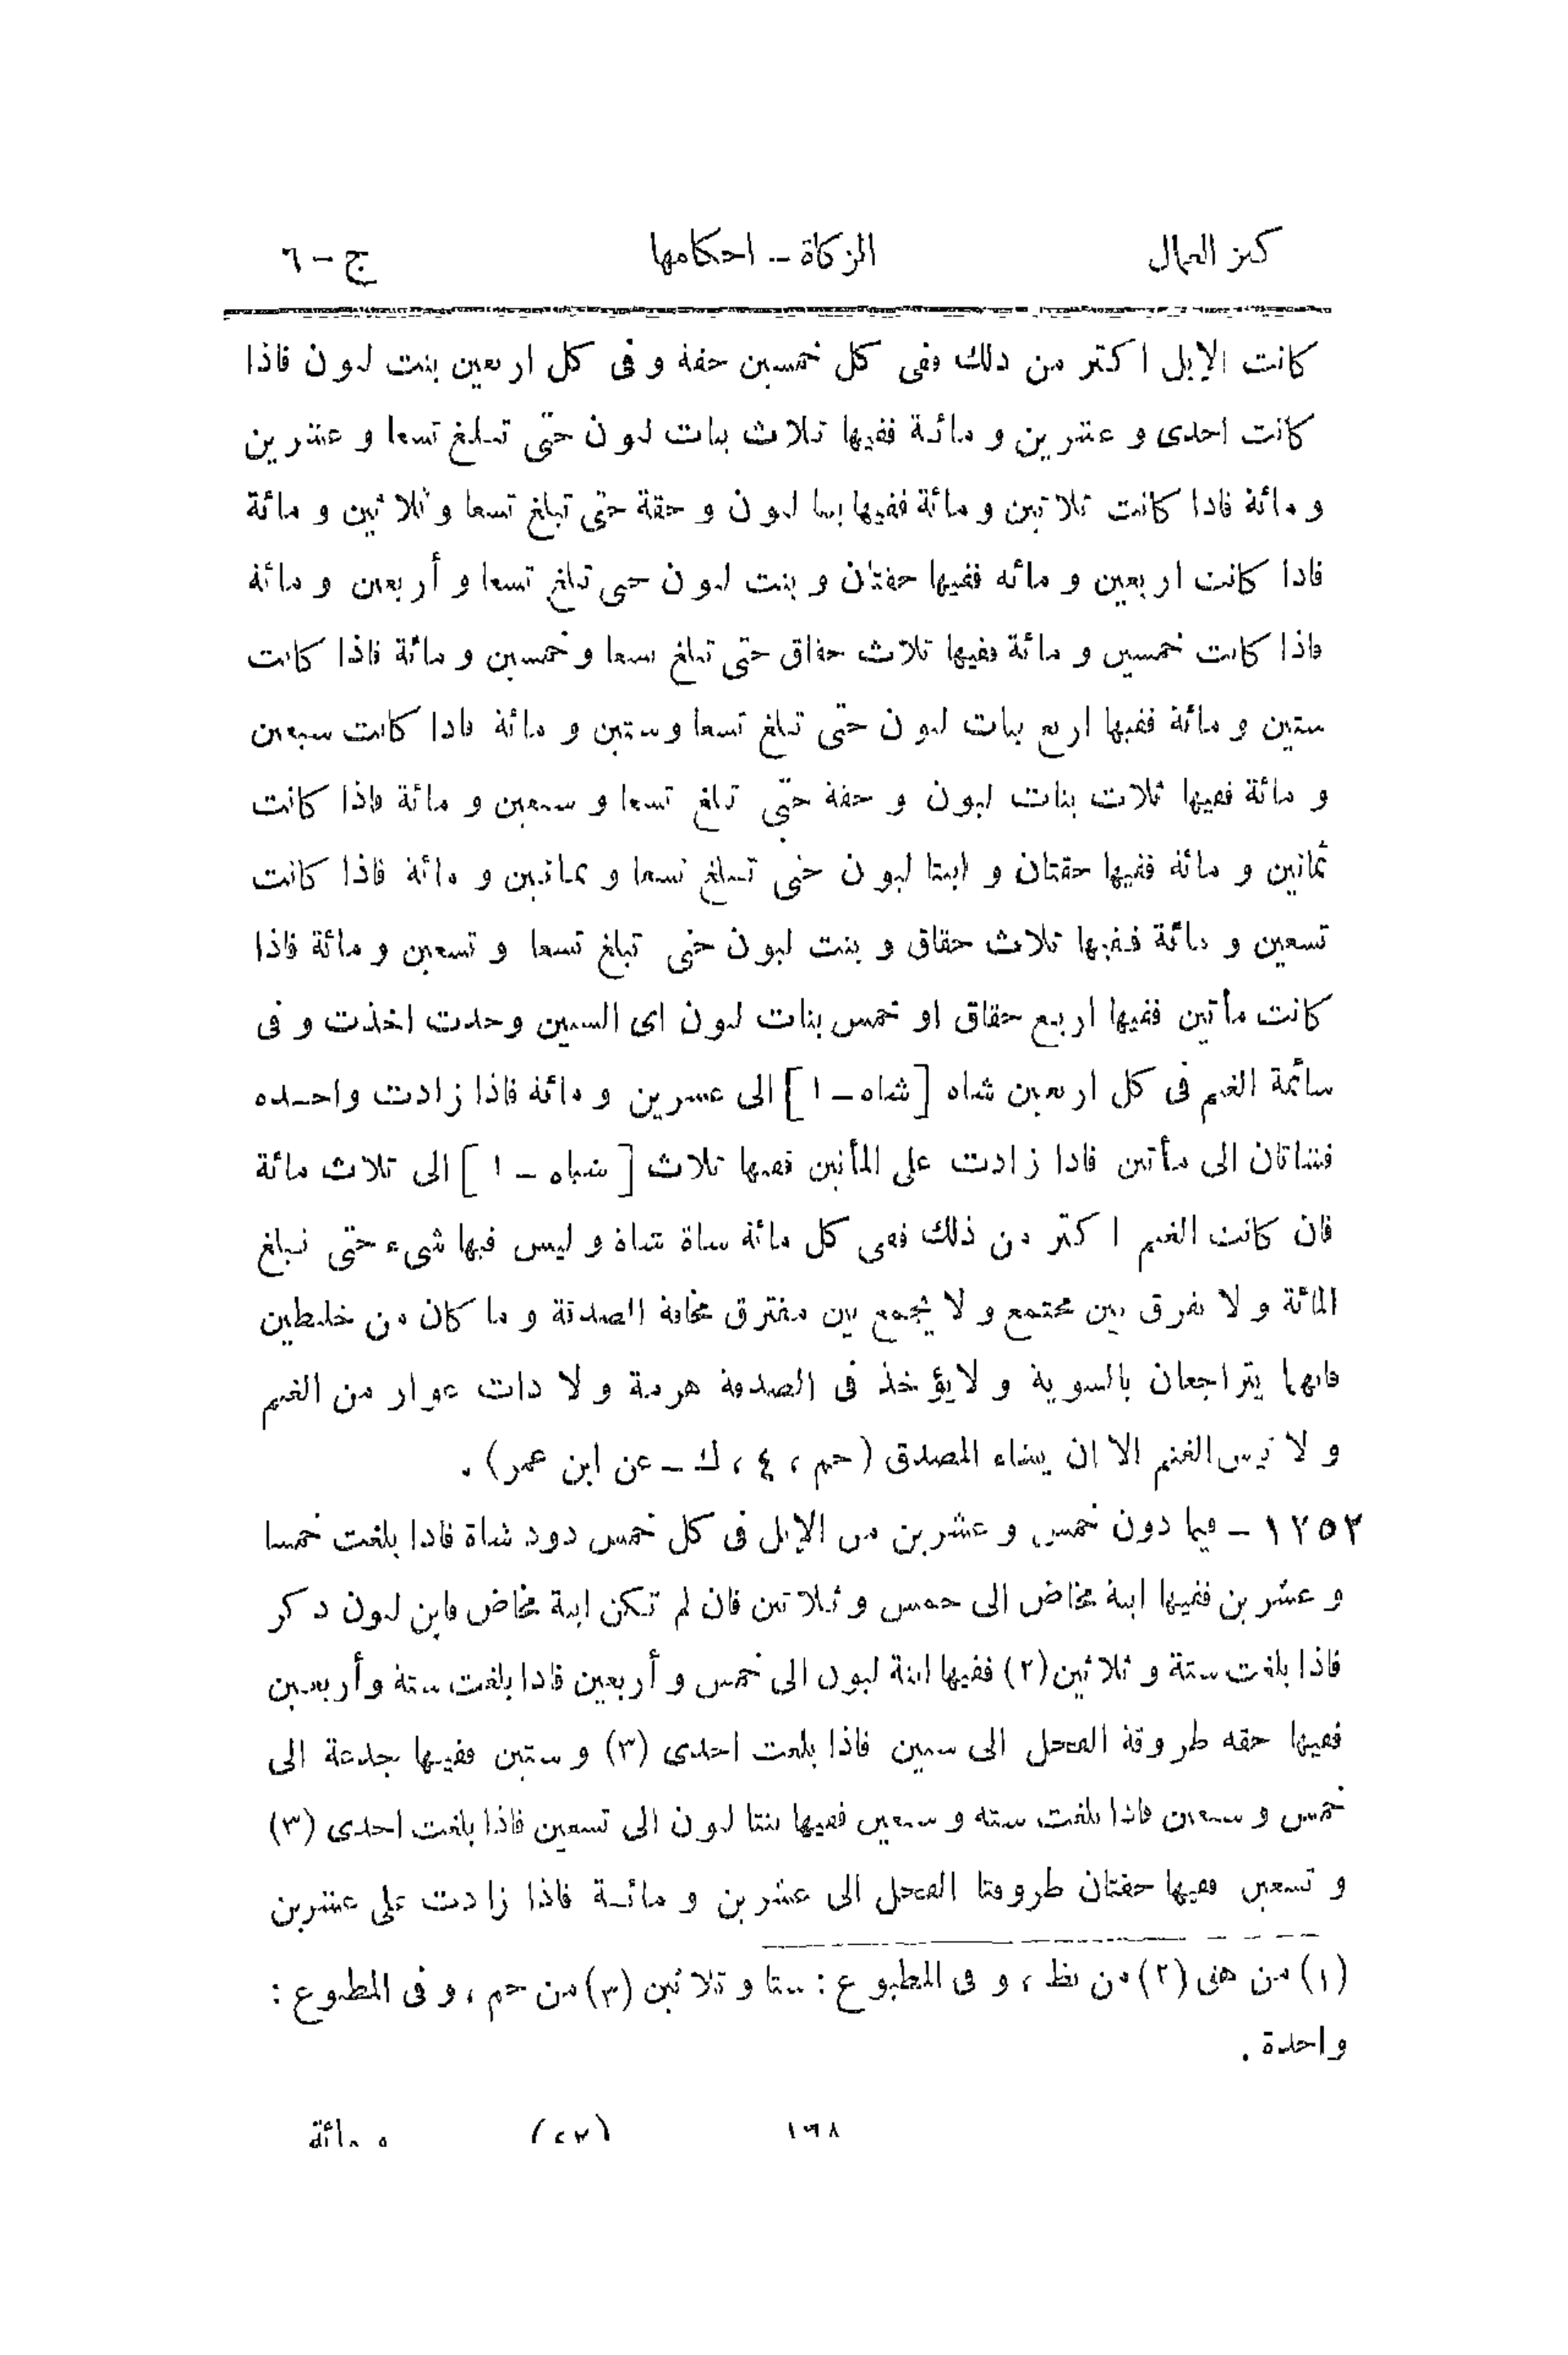 كنز العمال الزكاة - احكامها ج - ٦
كانت الإبل اكثر من ذلك ففى كل خمسين حقة و فى كل اربعين بنت لبون فاذا
كانت احدى و عشرين و مائة ففيها ثلاث بنات لبون حتى تبلغ تسعا و عشرين
و مائة فاذا كانت ثلاثين و مائة ففيها بنتا لبون و حقة حتى تبلغ تسعا و ثلاثين و مائة
فاذا كانت اربعين و مائة ففيها حقتان و بنت لبون حتى تبلغ تسعا و أربعين و مائة
فاذا كانت خمسين و مائة ففيها ثلاث حقاق حتى تبلغ تسعا و خمسين و مائة فاذا كانت
ستين و مائة ففيها اربع بنات لبون حتى تبلغ تسعا و ستين و مائة فاذا كانت سبعين
و مائة ففيها ثلاث بنات لبون و حقة حتى تبلغ تسعا و سبعين و مائة فاذا كانت
ثمانين و مائة ففيها حقتان و ابنتا لبون حتى تبلغ تسعا و ثمانين و مائة فاذا كانت
تسعين و مائة ففيها ثلاث حقاق و بنت لبون حتى تبلغ تسعا و تسعين و مائة فاذا
كانت مأتين ففيها اربع حقاق او خمس بنات لبون اى السنين وجدت اخذت و فى
سائمة الغنم فى كل اربعين شاه [شاه - ١] الى عشرين و مائة فاذا زادت واحده
فشاتان الى مأتين فاذا زادت على المأتين ففيها ثلاث [شياه - ١] الى ثلاث مائة
فان كانت الغنم اكثر من ذلك ففى كل مائة شاة شاة و ليس فيها شىء حتى تبلغ
المائة و لا يفرق بين مجتمع و لا يجمع بين مفترق مخافة الصدقة و ما كان من خليطين
فانهما يتراجعان بالسوية و لا يؤخذ فى الصدقة هرمة و لا ذات عوار من الغنم
و لا تيس الغنم الا ان يشاء المصدق (حم ، ٤ ، ك - عن ابن عمر) .
١٢٥٢ - فيما دون خمس و عشرين من الإبل فى كل خمس ذود شاة فاذا بلغت خمسا
و عشرين ففيها ابنة مخاض الى خمس و ثلاثين فان لم تكن ابنة مخاض فابن لبون ذكر
فاذا بلغت ستة و ثلاثين (٢) ففيها ابنة لبون الى خمس و أربعين فاذا بلغت ستة و أربعين
ففيها حقه طروقة الفحل الى ستين فاذا بلغت احدى (٣) و ستين ففيها جذعة الى
خمس و سبعين فاذا بلغت سته و سبعين ففيها بنتا لبون الى تسعين فاذا بلغت احدى (٣)
و تسعين ففيها حقتان طروقتا الفحل الى عشرين و مائة فاذا زادت على عشرين
(١) من هق (٢) من نظ ، و فى المطبوع : ستا و ثلاثين (٣) من حم ، و فى المطبوع :
واحدة .
١٦٨ (٤٢) و مائة